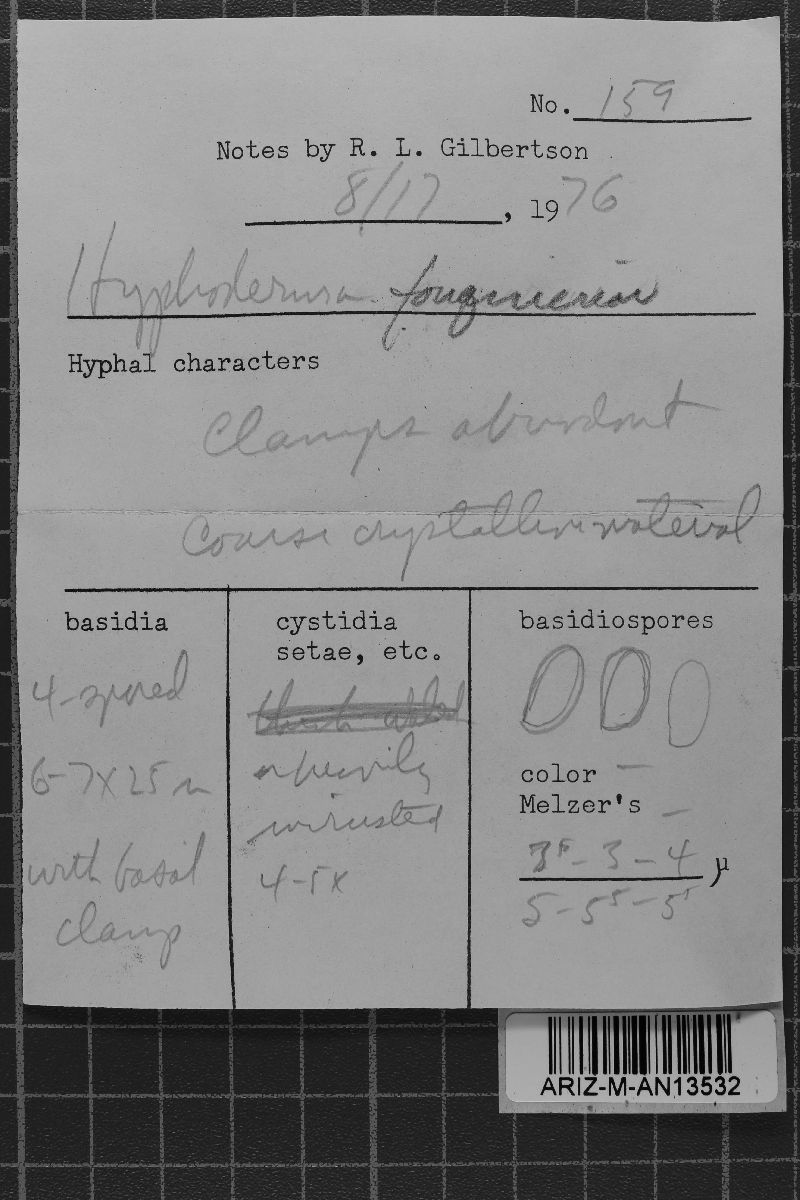 No. 159
Notes by R. L. Gilbertson
8/17, 1976
Hyphoderma fouquieriae
Hyphal characters
Clamps abundant
Coarse crystalline material
basidia
4-spored
6-7 x 25 µ
with basal
clamp
cystidia
setae, etc.
heavily
incrusted
4-5 x
basidiospores
color —
Melzer's —
3⁵ - 3 - 4 µ
5 - 5⁵ - 5⁵
ARIZ-M-AN13532